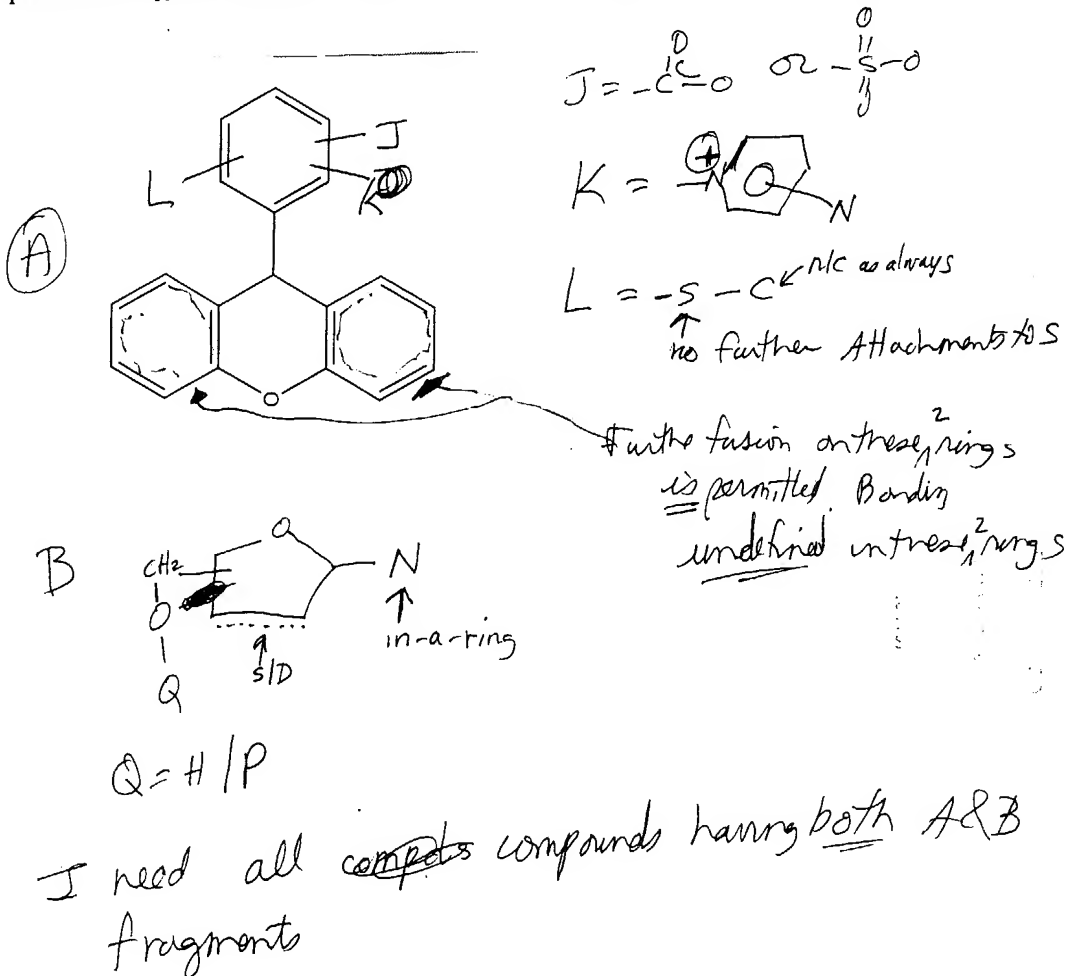 J = -C-O or -S-O
L
J
K
K = -N
N
A
L = -S - C n/c as always
no further Attachments to S
O
Further fusion on these 2 rings
is permitted. Bonding
undefined in these 2 rings
B
CH2
O
N
O
in-a-ring
Q
S/D
Q = H / P
I need all compounds having both A & B
fragments